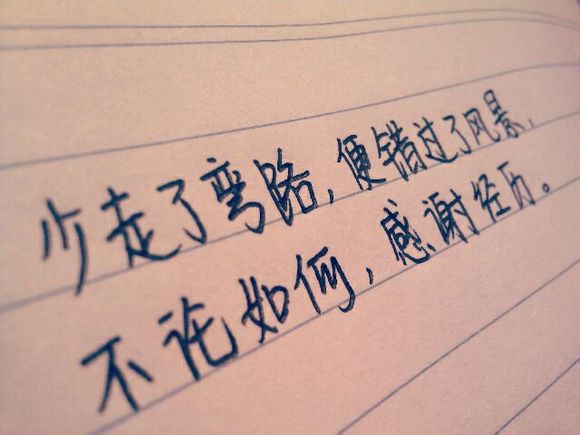 少走了弯路,便错过了风景,
不论如何,感谢经历。